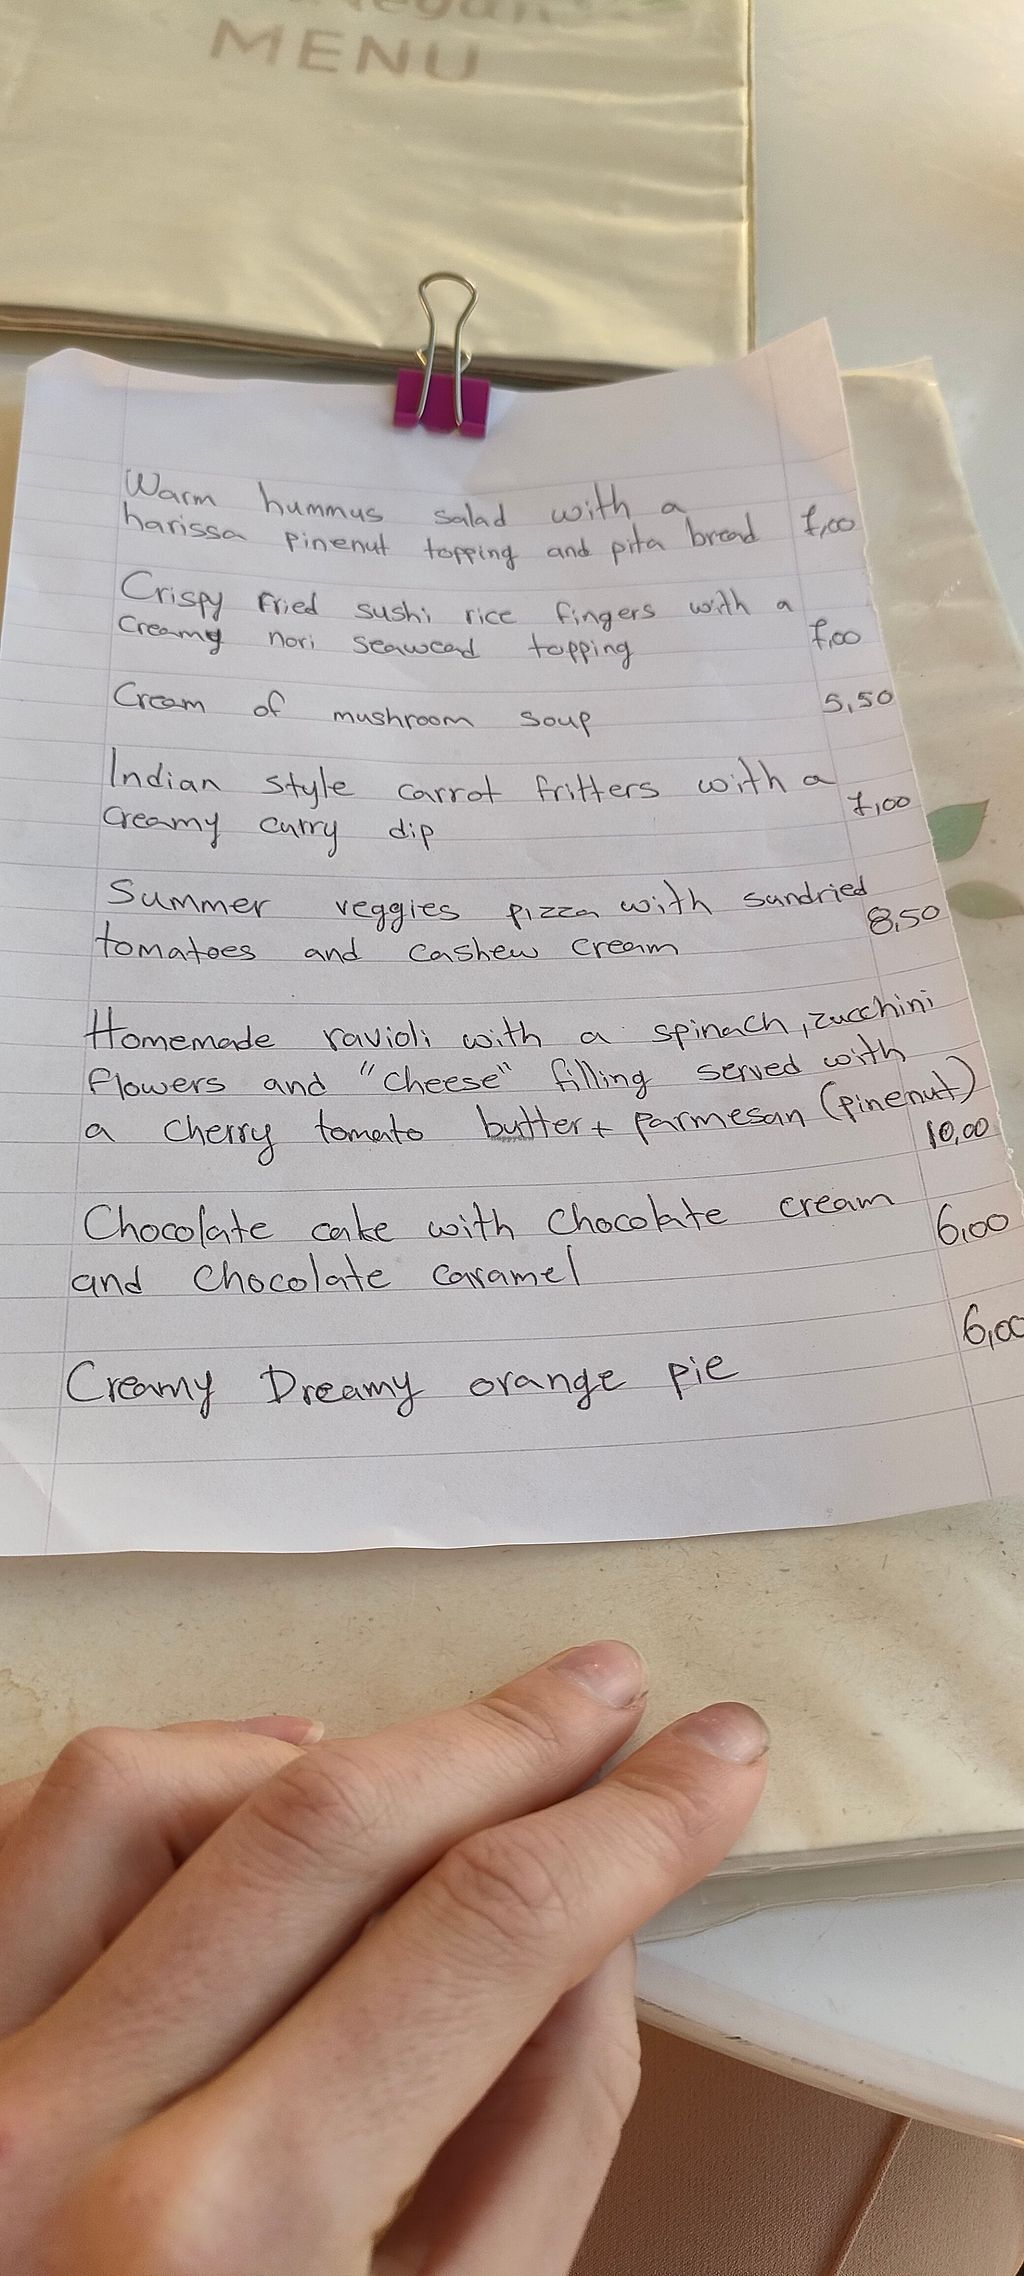 Vegan
MENU
Warm hummus salad with a
harissa pinenut topping and pita bread 7,00
Crispy fried sushi rice fingers with a
creamy nori seaweed topping 7,00
Cream of mushroom soup 5,50
Indian style carrot fritters with a
creamy curry dip 7,00
Summer veggies pizza with sundried
tomatoes and cashew cream 8,50
Homemade ravioli with a spinach, zucchini
flowers and "cheese" filling served with
a cherry tomato butter + parmesan (pinenut)
10,00
Chocolate cake with chocolate cream
and chocolate caramel 6,00
Creamy Dreamy orange pie 6,00
HappyCow